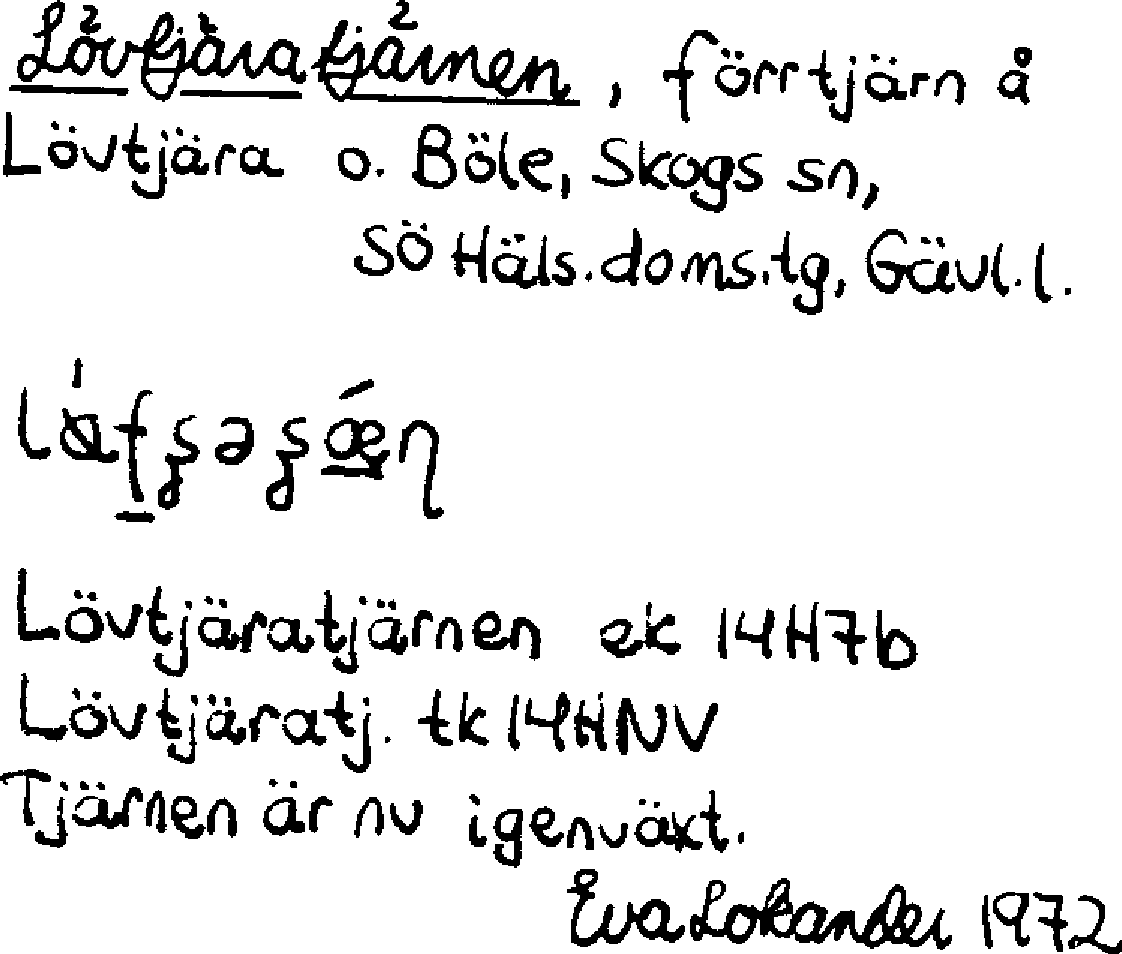 Lövtjäratjärnen, förr tjärn å
Lövtjära o. Böle, Skogs sn,
SÖ Häls.doms.tg, Gävl.l.
Lövtjäratjärnen ek 14H7b
Lövtjäratj. tk 14HNV
Tjärnen är nu igenväxt.
Eva Lokander 1972